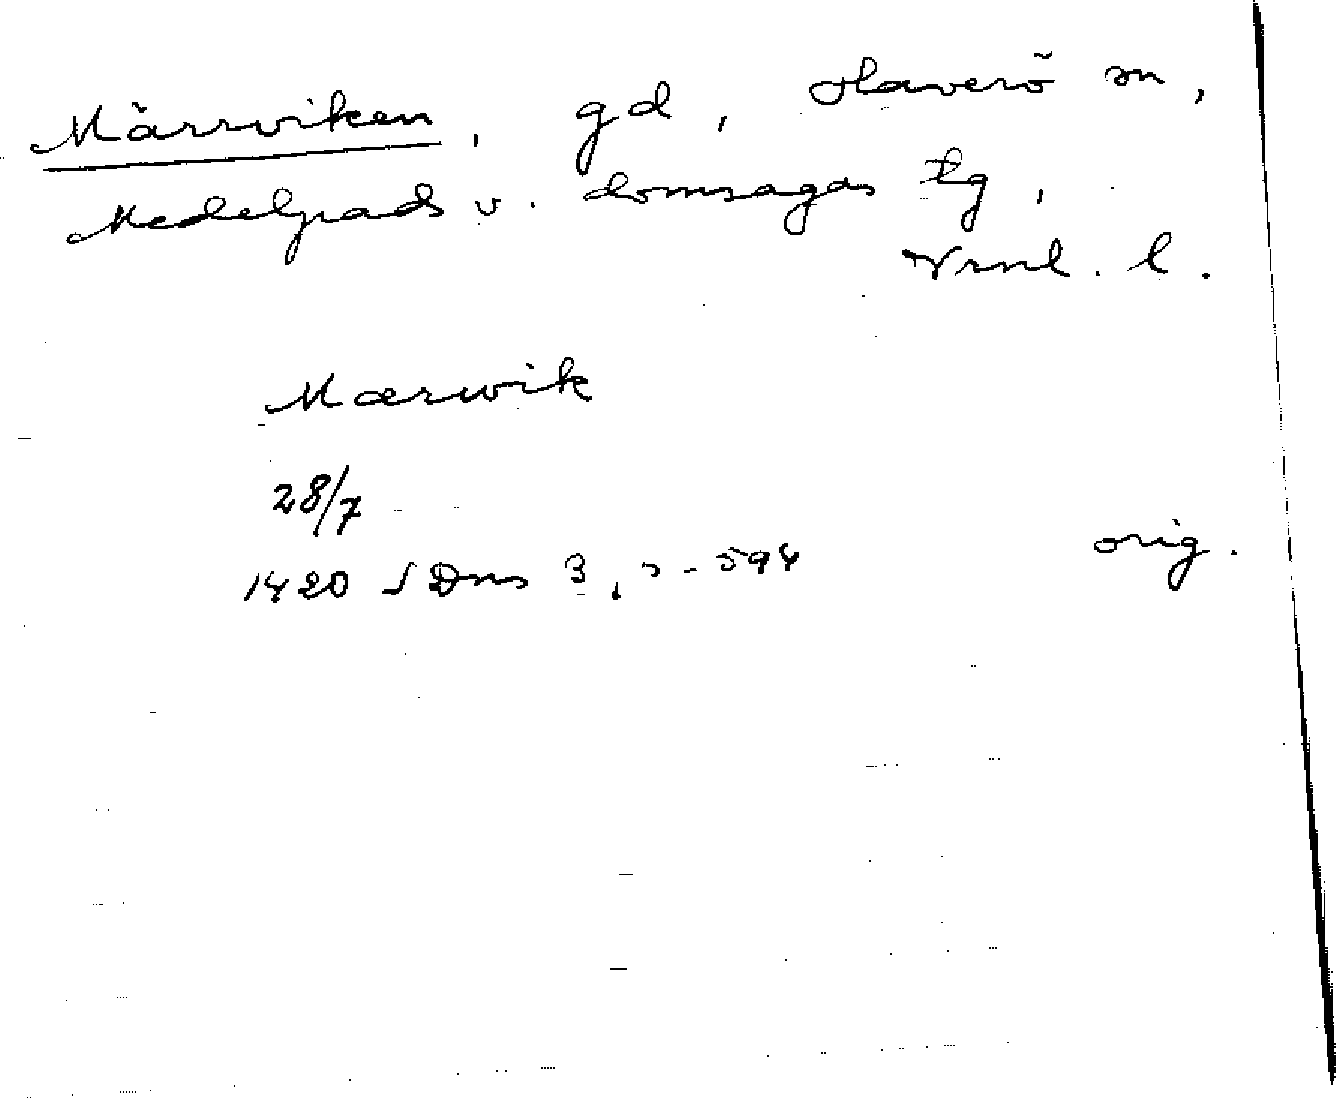 Märrviken, gd, Haverö sn,
Medelpads v. domsagas tg,
Vrnl. l.
Mærwik
28/7
1420 SDns 3, s. 594 orig.